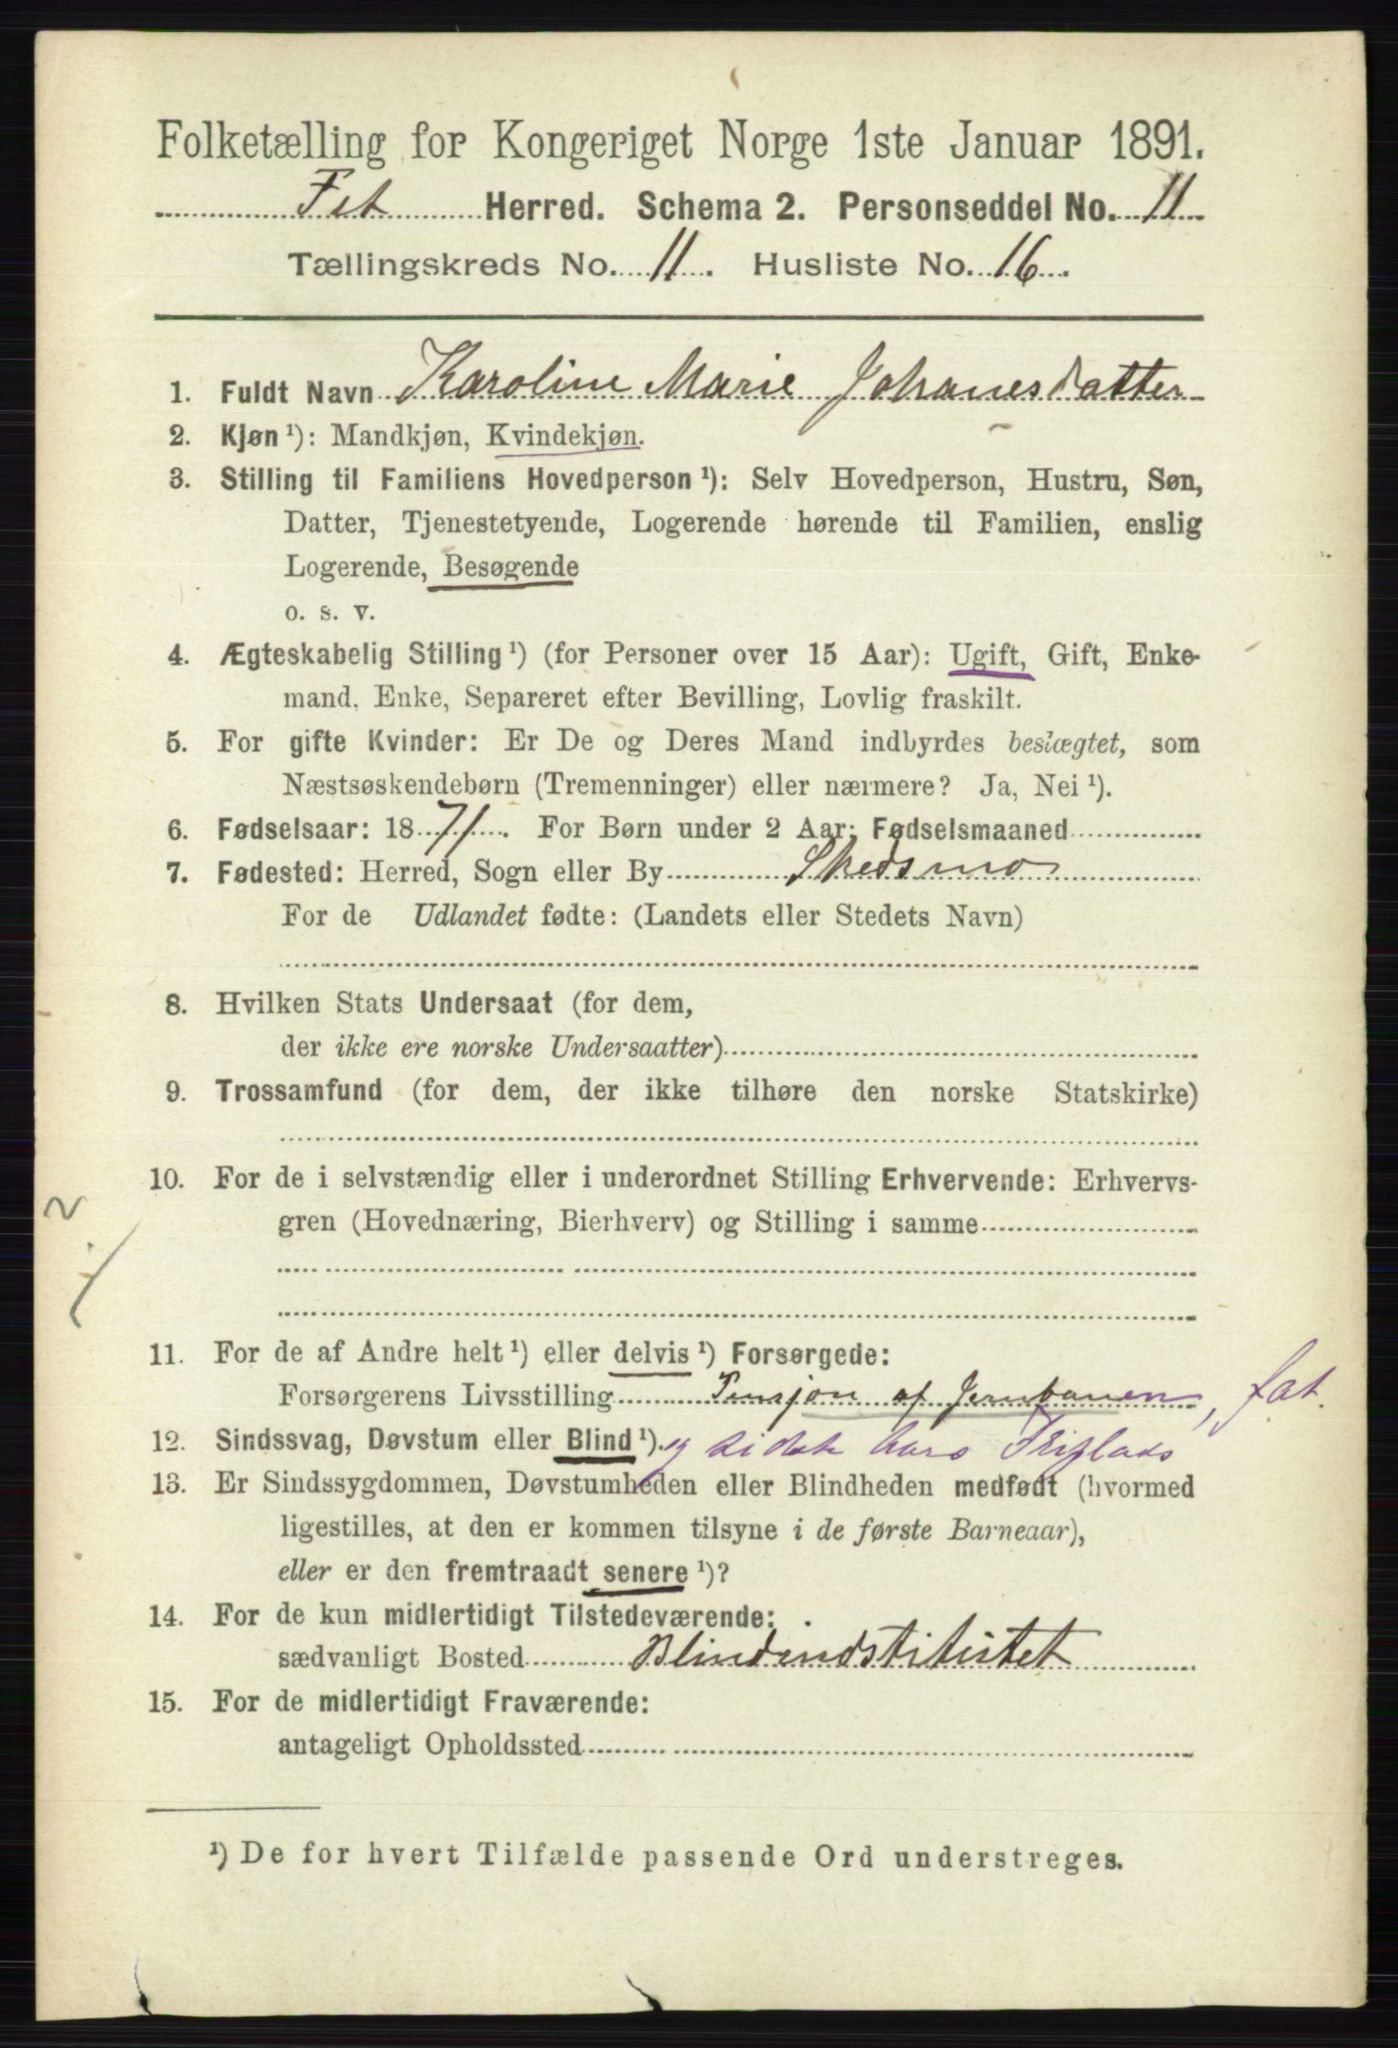 Folketælling for Kongeriget Norge 1ste Januar 1891.
Fet Herred. Schema 2. Personseddel No. 11
Tællingskreds No. 11. Husliste No. 16.
1. Fuldt Navn Karoline Marie Johanesdatter
2. Kjøn ¹): Mandkjøn, Kvindekjøn.
3. Stilling til Familiens Hovedperson ¹): Selv Hovedperson, Hustru, Søn,
Datter, Tjenestetyende, Logerende hørende til Familien, enslig
Logerende, Besøgende
o. s. v.
4. Ægteskabelig Stilling ¹) (for Personer over 15 Aar): Ugift, Gift, Enke-
mand, Enke, Separeret efter Bevilling, Lovlig fraskilt.
5. For gifte Kvinder: Er De og Deres Mand indbyrdes beslægtet, som
Næstsøskendebørn (Tremenninger) eller nærmere? Ja, Nei ¹).
6. Fødselsaar: 1871. For Børn under 2 Aar: Fødselsmaaned
7. Fødested: Herred, Sogn eller By Skedsmo
For de Udlandet fødte: (Landets eller Stedets Navn)
8. Hvilken Stats Undersaat (for dem,
der ikke ere norske Undersaatter)
9. Trossamfund (for dem, der ikke tilhøre den norske Statskirke)
10. For de i selvstændig eller i underordnet Stilling Erhvervende: Erhvervs-
gren (Hovednæring, Bierhverv) og Stilling i samme
2
11. For de af Andre helt ¹) eller delvis ¹) Forsørgede:
Forsørgerens Livsstilling Pensjon af Jernbanen, fat.
12. Sindssvag, Døvstum eller Blind ¹). Friplads
13. Er Sindssygdommen, Døvstumheden eller Blindheden medfødt (hvormed
ligestilles, at den er kommen tilsyne i de første Barneaar),
eller er den fremtraadt senere ¹)?
14. For de kun midlertidigt Tilstedeværende:
sædvanligt Bosted Blindindstitutet
15. For de midlertidigt Fraværende:
antageligt Opholdssted
¹) De for hvert Tilfælde passende Ord understreges.